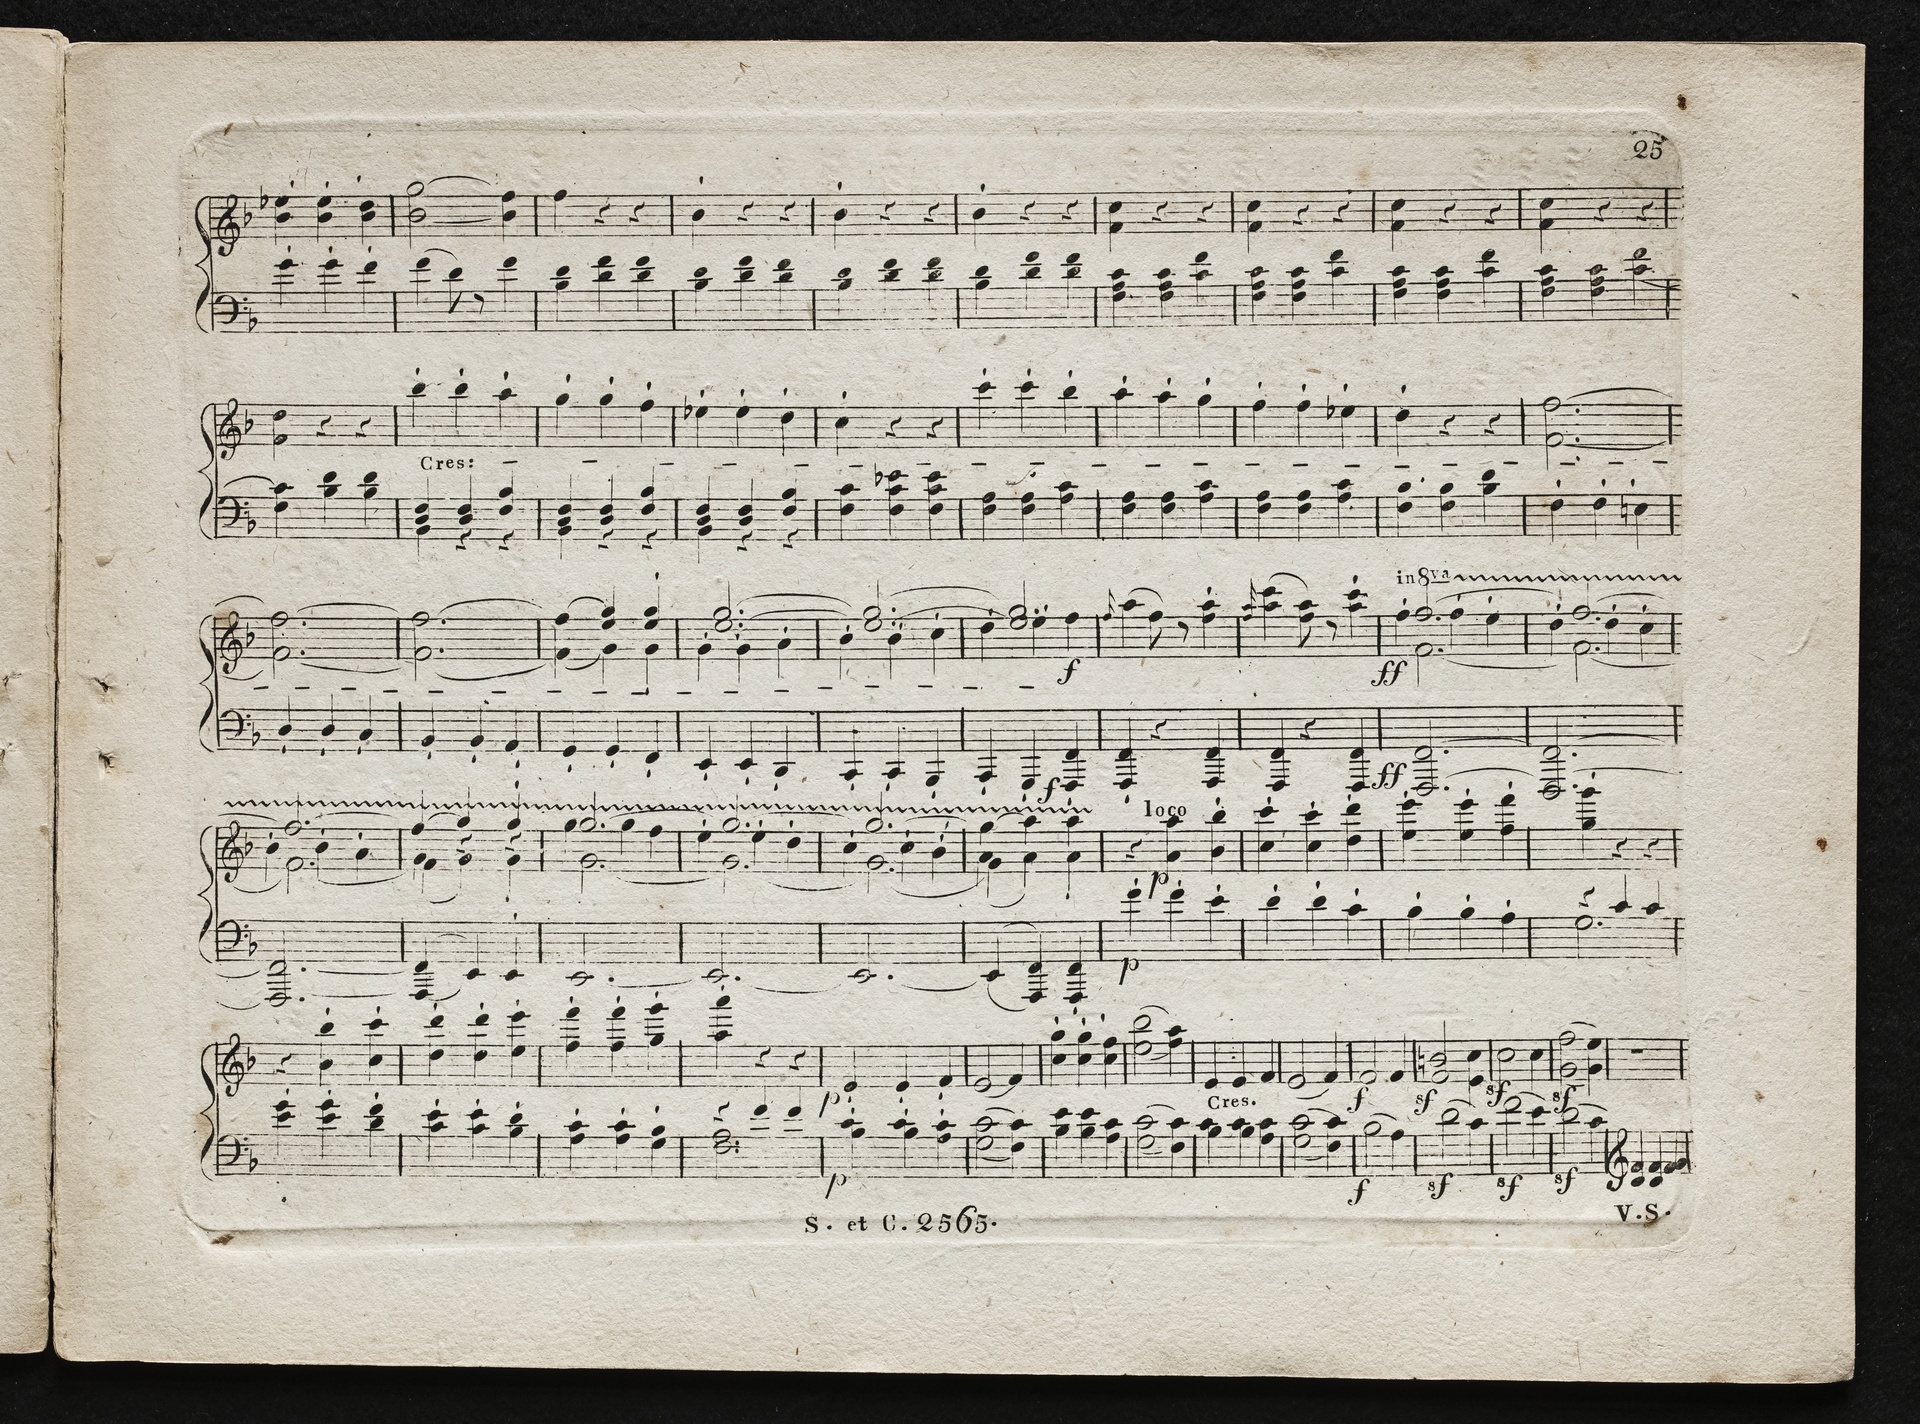 25
Cres:
in8va
f
ff
f
ff
loco
p
p
p
Cres.
f
sf
sf
sf
p
f
sf
sf
sf
S. et C. 2565.
V.S.